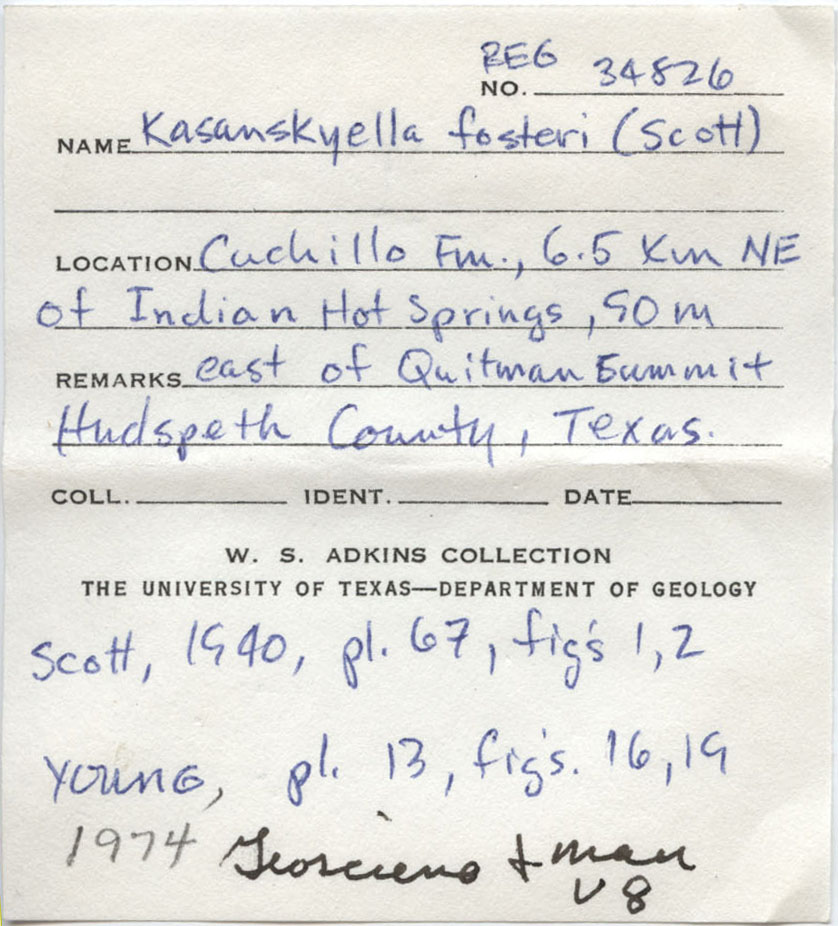 REG
NO. 34826
NAME Kasanskyella fosteri (Scott)
LOCATION Cuchillo Fm., 6.5 Km NE
of Indian Hot Springs, 90 m
REMARKS east of Quitman Summit
Hudspeth County, Texas.
COLL. IDENT. DATE
W. S. ADKINS COLLECTION
THE UNIVERSITY OF TEXAS—DEPARTMENT OF GEOLOGY
Scott, 1940, pl. 67, fig's 1,2
YOUNG, pl. 13, fig's. 16,19
1974 & man
V 8